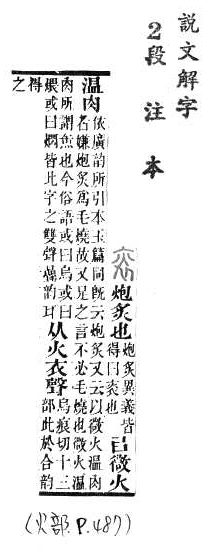 説文解字
2段注本
炮炙也
炮炙異義皆
得曰炙也
㠯微火
溫肉
依廣韵所引本玉篇同旣云炮炙又云以微火溫肉
者嫌炮炙爲毛燒故又足之言不必毛燒也微火溫
肉所謂缹也今俗語或曰烏或曰
煨或曰燜皆此字之雙聲曡韵耳
从火衣聲
烏痕切十三
部此於合韵
得
之
(火部.P.487)